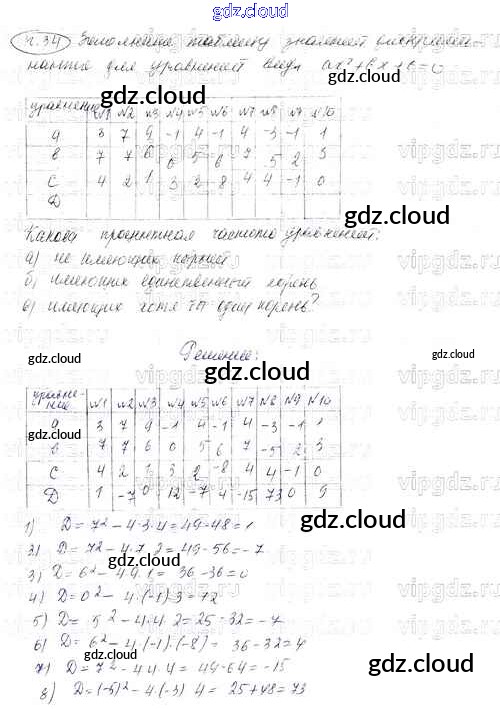 gdz.cloud
ч.34 Заполните таблицу значений дискриминанта для уравнений вида ax²+bx+c=0
уравнение №1 №2 №3 №4 №5 №6 №7 №8 №9 №10
a 3 7 9 -1 4 -1 4 -3 -1 1
b 7 7 6 0 5 6 7 -5 2 3
c 4 2 1 3 2 -8 4 4 -1 0
D
Какова процентная частота уравнений:
а) не имеющих корней
б) имеющих единственный корень
в) имеющих хотя бы один корень?
Решение:
уравнение №1 №2 №3 №4 №5 №6 №7 №8 №9 №10
a 3 7 9 -1 4 -1 4 -3 -1 1
b 7 7 6 0 5 6 7 -5 2 3
c 4 2 1 3 2 -8 4 4 -1 0
D 1 -7 0 12 -7 4 -15 73 0 9
1) D=7²-4·3·4=49-48=1
2) D=7²-4·7·2=49-56=-7
3) D=6²-4·9·1=36-36=0
4) D=0²-4·(-1)·3=12
5) D=5²-4·4·2=25-32=-7
6) D=6²-4·(-1)·(-8)=36-32=4
7) D=7²-4·4·4=49-64=-15
8) D=(-5)²-4·(-3)·4=25+48=73